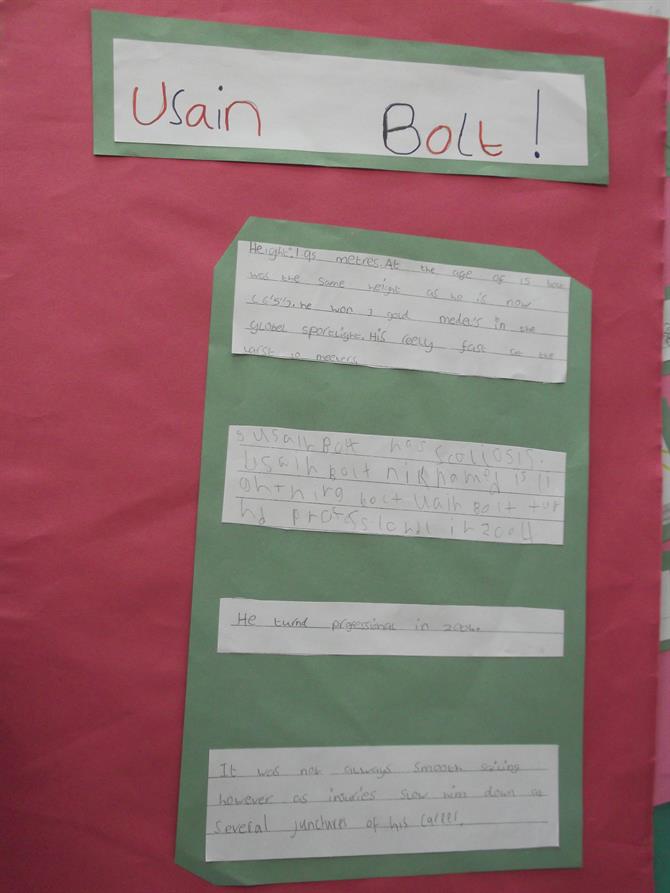 Usain Bolt!
Height: 1.95 metres. At the age of 15 he
was the same height as he is now
(6'5"). he won 3 gold medels in the
global sportlight. His reelly fast at the
metters
s Usain Bolt has scoliosis.
Usain bolt niknamed is li
ghtning bolt Uain Bolt tur
nd professional in 2004
He turnd professional in 2004.
It was not always smooth sailing
however as injuries slow him down at
several junctures of his career.